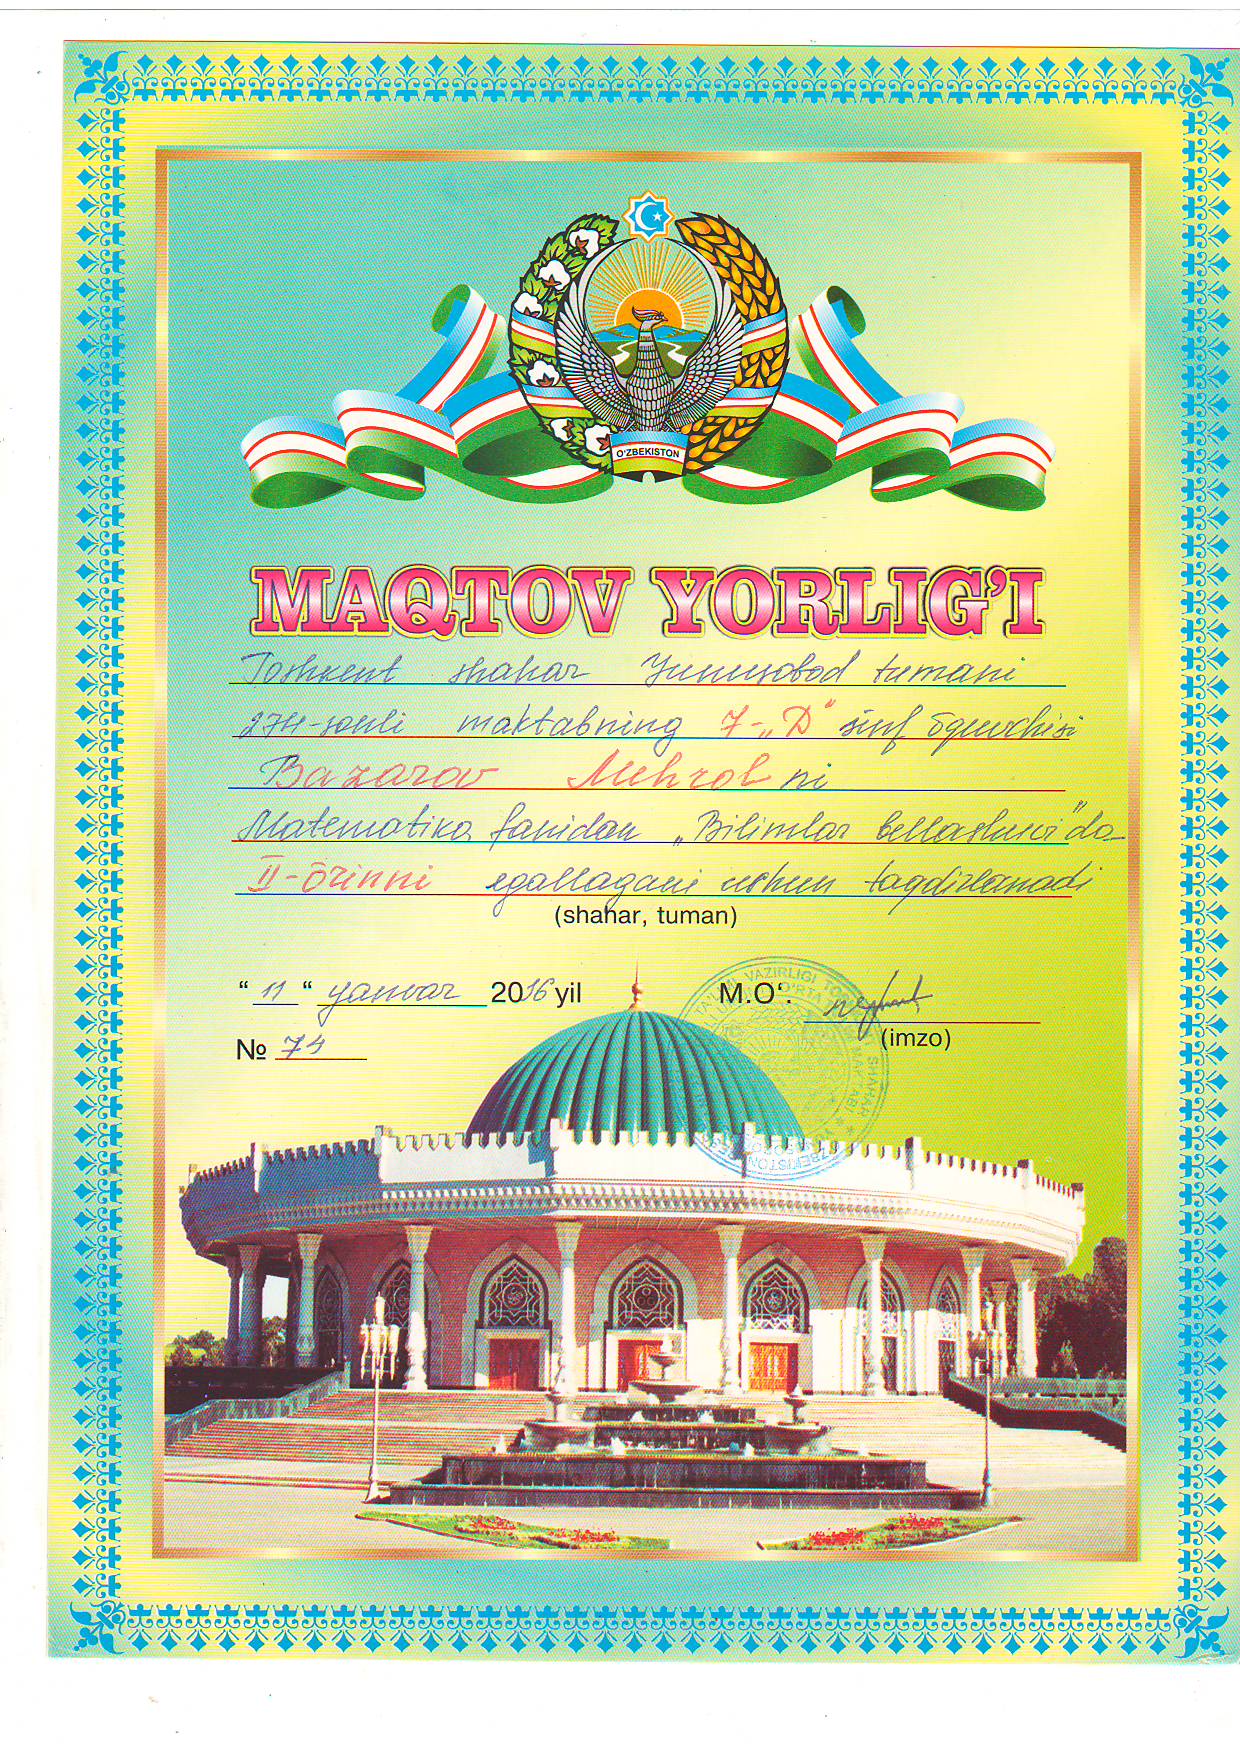 O'ZBEKISTON
MAQTOV YORLIG'I
Toshkent shahar Yunusobod tumani
274-sonli maktabning 7-„D" sinf o̅quvchisi
Bazarov Mehrol ni
Matematika fanidan „Bilimlar bellashuvi"da
II-o̅rinni egallagani uchun taqdirlanadi
(shahar, tuman)
“ 11 “ yanvar 2016 yil M.O‘.
(imzo)
№ 74
VAZIRLIGI
SHAHAR
MAKTABI